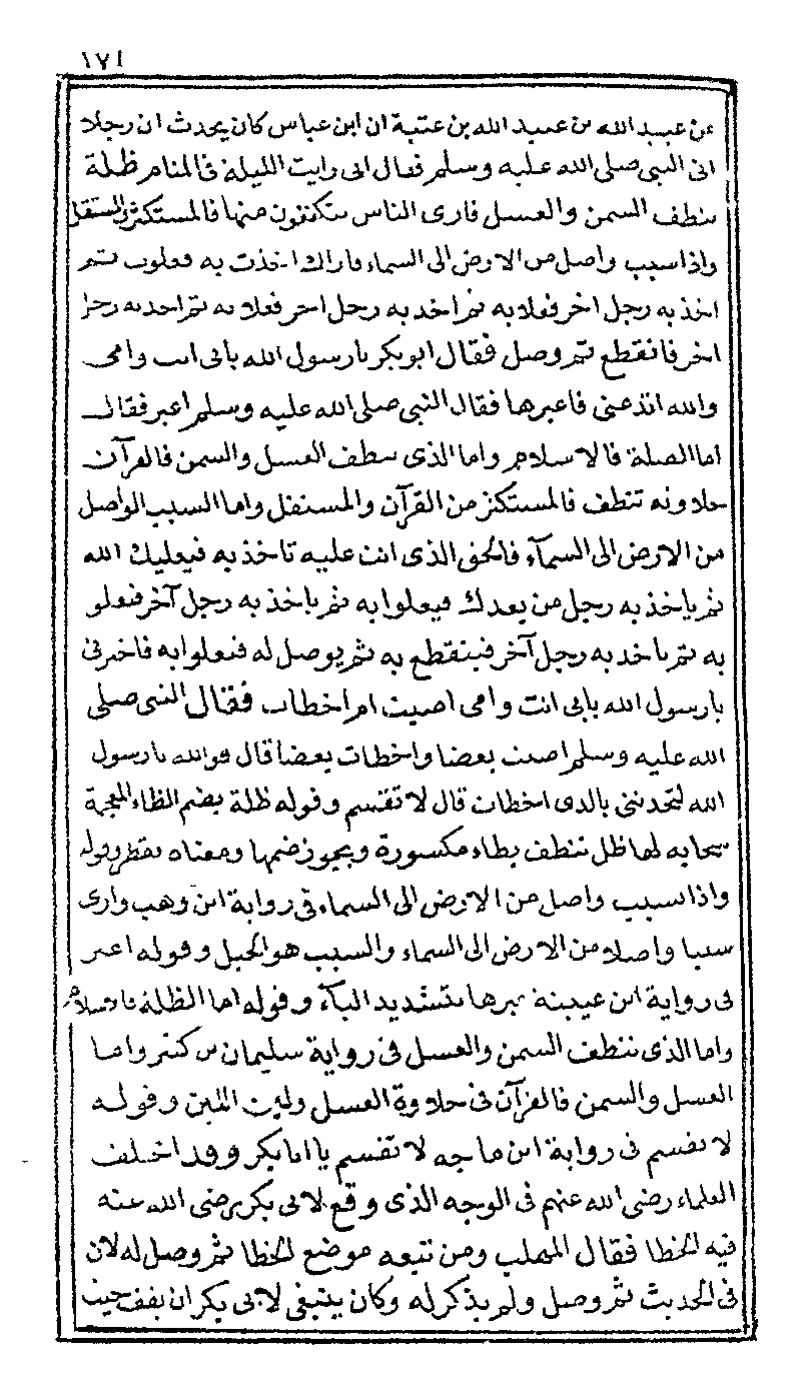 ١٧١
عن عبيد الله بن عبد الله بن عتبة ان ابن عباس كان يحدث ان رجلا
اتى النبي صلى الله عليه وسلم فقال انى رايت الليلة فى المنام ظلة
تنطف السمن والعسل فارى الناس يتكففون منها فالمستكثر والمستقل
واذا سبب واصل من الارض الى السماء فاراك اخذت به فعلوت ثم
اخذ به رجل اخر فعلا به ثم اخذ به رجل اخر فعلا به ثم اخذ به رجل
اخر فانقطع ثم وصل فقال ابو بكر يا رسول الله بابى انت وامى
والله لتدعنى فاعبرها فقال النبي صلى الله عليه وسلم اعبر فقال
اما الظلة فالاسلام واما الذى ينطف العسل والسمن فالقرآن
حلاوته تنطف فالمستكثر من القرآن والمستقل واما السبب الواصل
من الارض الى السمآء فالحق الذى انت عليه تاخذ به فيعليك الله
ثم ياخذ به رجل من بعدك فيعلوا به ثم ياخذ به رجل آخر فيعلو
به ثم ياخذ به رجل آخر فينقطع به ثم يوصل له فيعلوا به فاخبرنى
يا رسول الله بابى انت وامى اصبت ام اخطات فقال النبى صلى
الله عليه وسلم اصبت بعضا واخطات بعضا قال فوالله يا رسول
الله لتحدثنى بالذى اخطات قال لا تقسم وقوله ظلة بضم الظاء المعجمة
سحابه لها ظل تنطف بطاء مكسورة ويجوز ضمها ومعناه تقطر وقوله
واذا سبب واصل من الارض الى السماء فى رواية ابن وهب وارى
سببا واصلا من الارض الى السماء والسبب هو الحبل وقوله اعبر
فى رواية ابن عيينة عبرها بتشديد البآء وقوله اما الظلة فالاسلام
واما الذى تنطف السمن والعسل فى رواية سليمان بن كثير واما
العسل والسمن فالقرآن فى حلاوة العسل ولين اللبن وقوله
لا تقسم فى رواية ابن ماجه لا تقسم يا ابا بكر وقد اختلف
العلماء رضى الله عنهم فى الوجه الذى وقع لابى بكر رضى الله عنه
فيه الخطا فقال المهلب ومن تبعه موضع الخطا ثم وصل له لان
فى الحديث ثم وصل ولم يذكر له وكان ينبغى لابى بكر ان يقف حيث